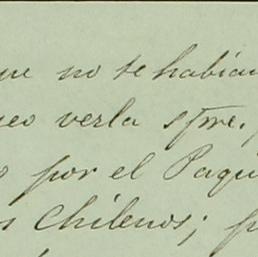 ue no se habían
eo verla spre.
por el Paqu
s Chilenos; p